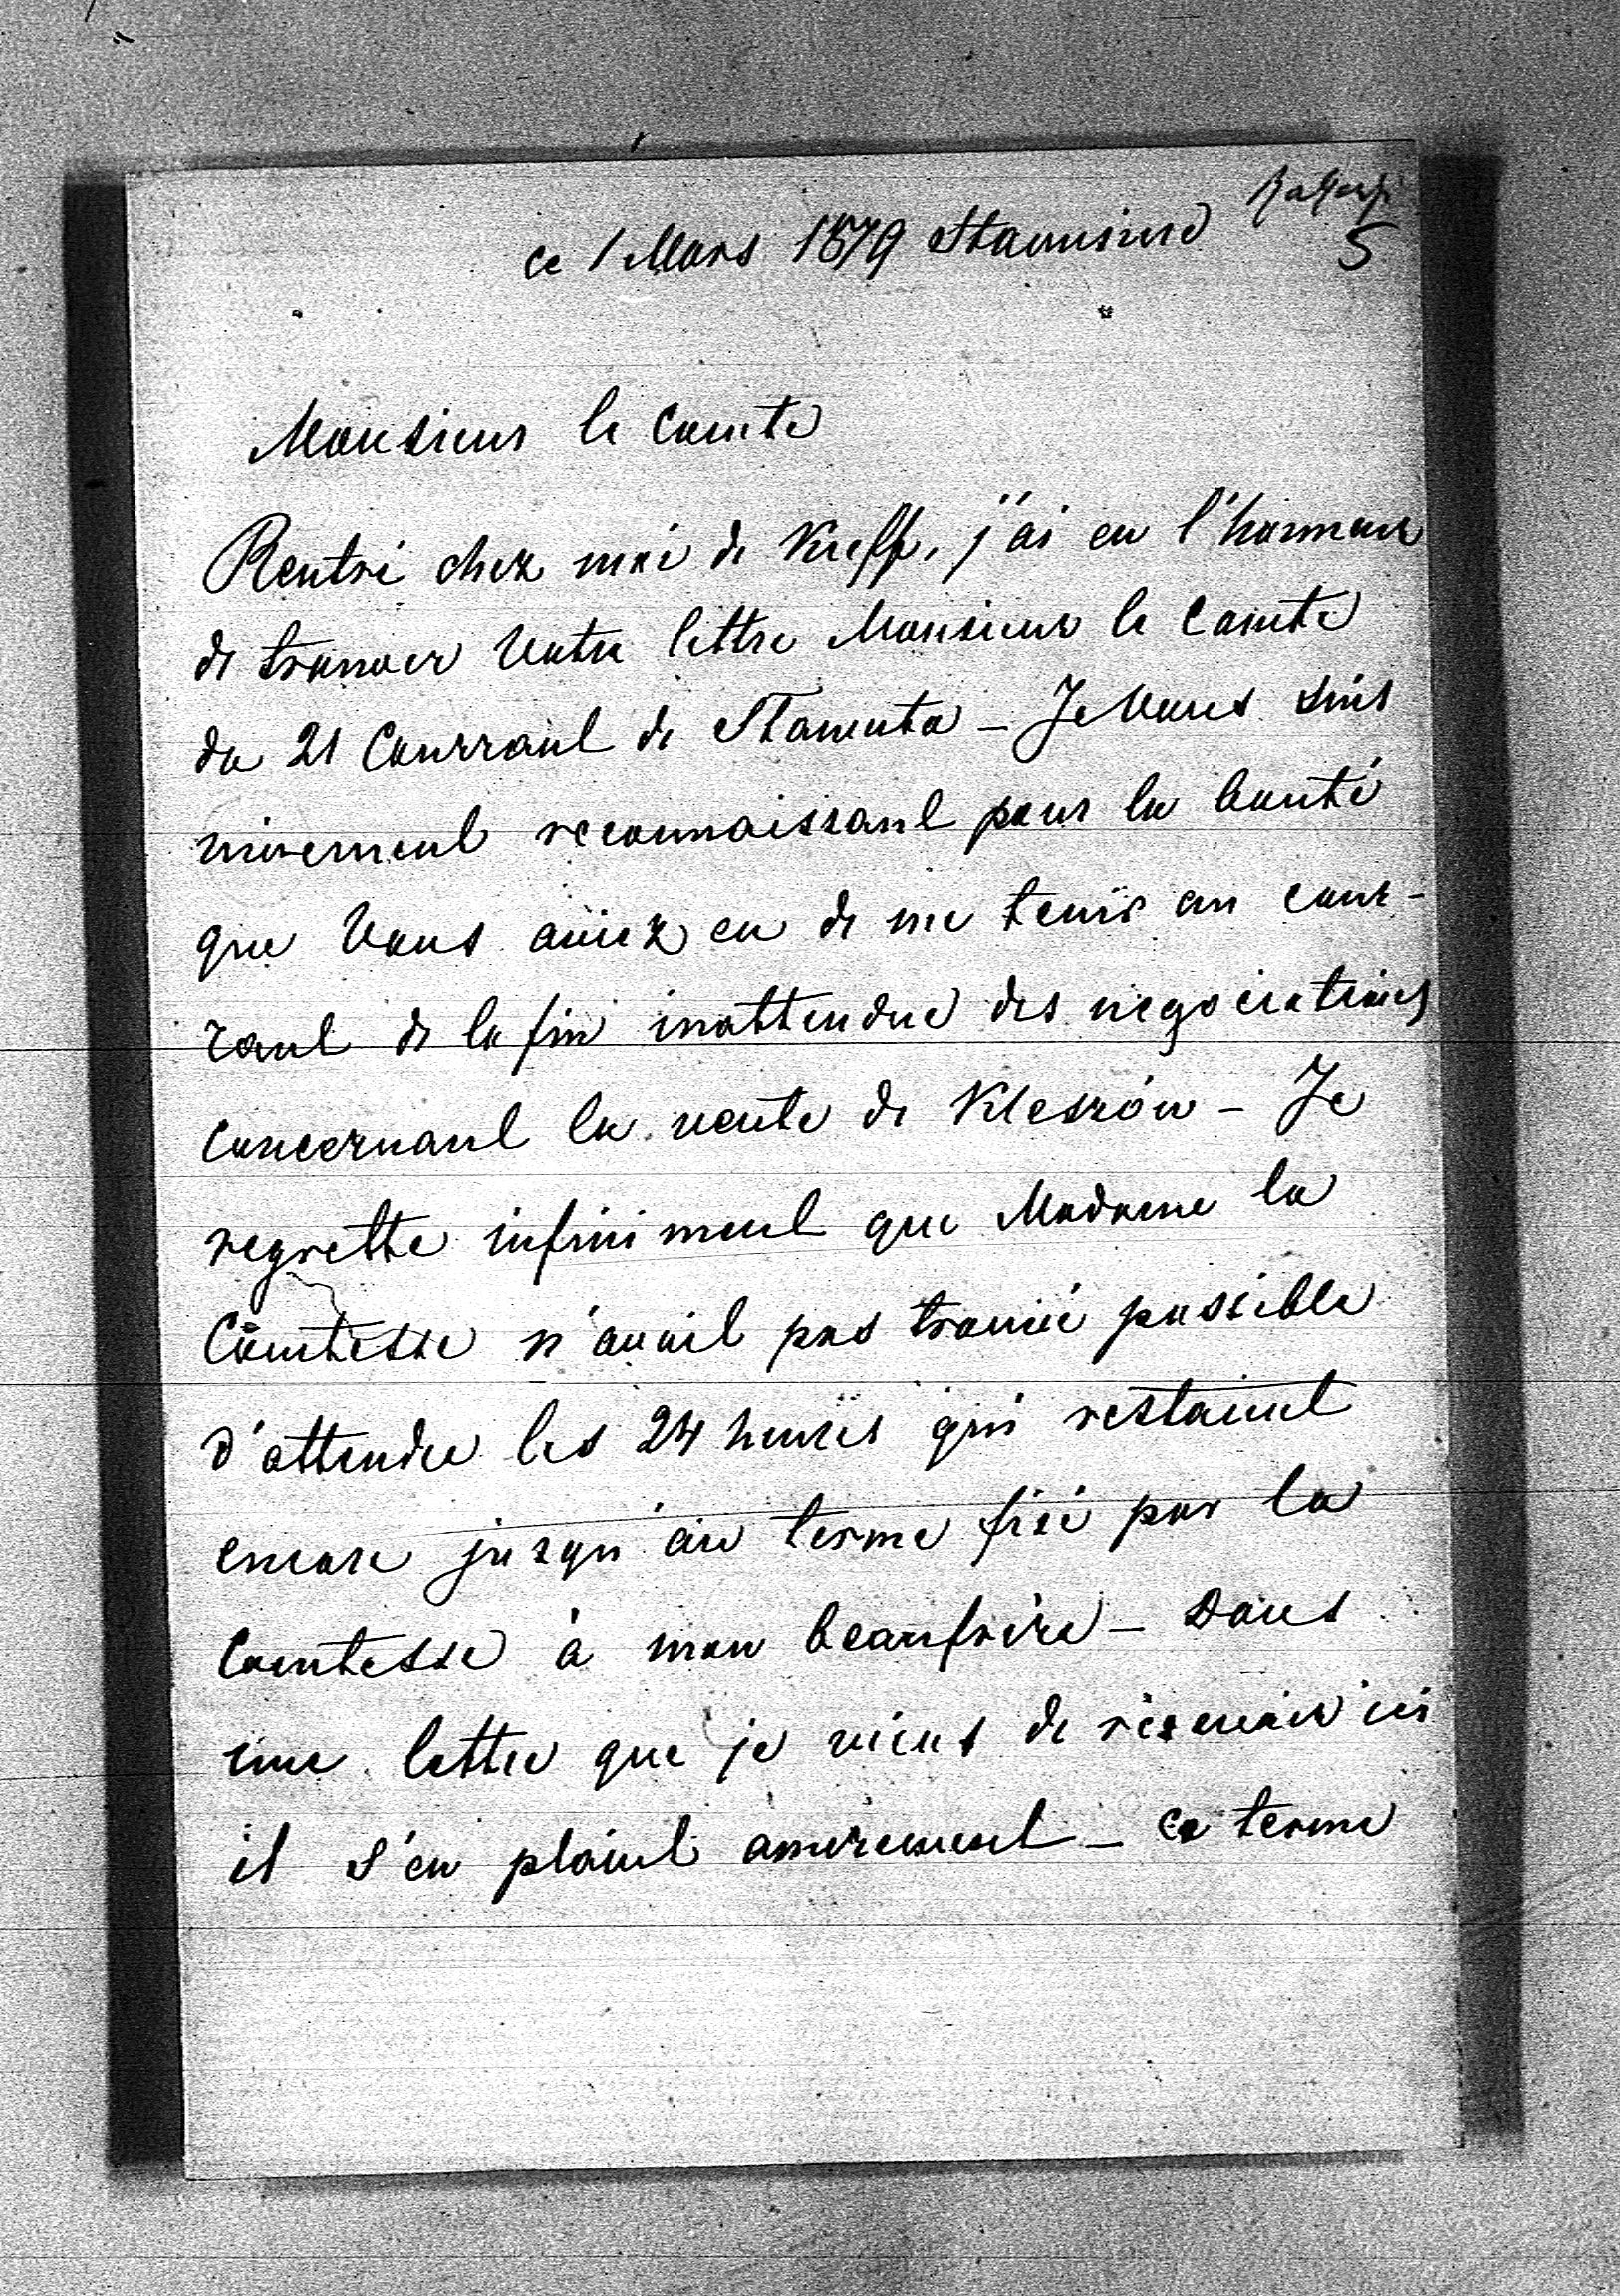 ce 1 Mars 1879
5
Monsieur le Comte
Rentré chez moi de Kieff, j'ai eu l'honneur
de trouver Votre lettre Monsieur le Comte
du 21 Courrant de Slawuta – Je Vous suis
vivement reconnaissant pour la bonté
que Vous aviez eu de me tenir au cour-
rant de la fin inattendue des negociations
concernant la vente de Kleszów – Je
regrette infiniment que Madame la
Comtesse n'avait pas trouvée possible
d'attendre les 24 heures qui restaient
encore jusqu'au terme fixé par la
Comtesse à mon beaufrère – Dans
une lettre que je viens de reçevoir ici
il s'en plaint amèrement – Ce terme